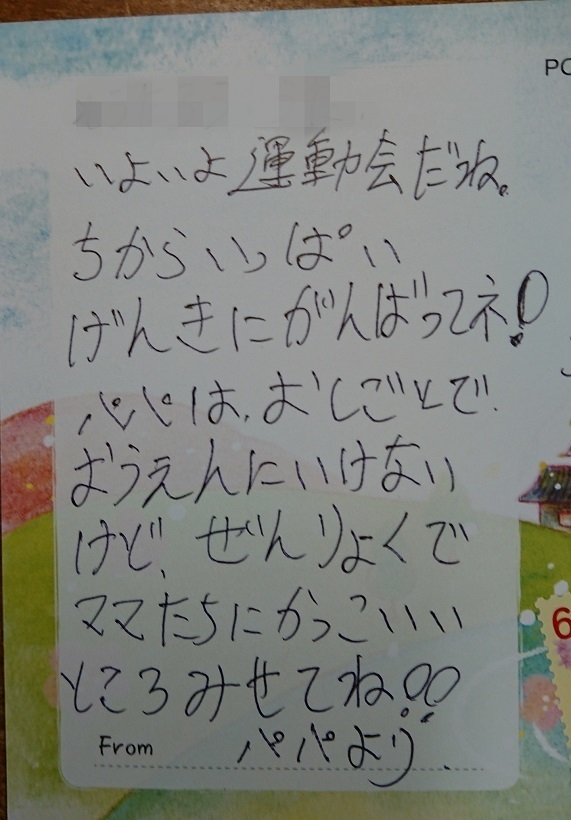 PO
いよいよ運動会だね。
ちからいっぱい
げんきにがんばってネ!
パパは、おしごとで
おうえんにいけない
けど、ぜんりょくで
ママたちにかっこいい
6
ところみせてね!!
From パパより